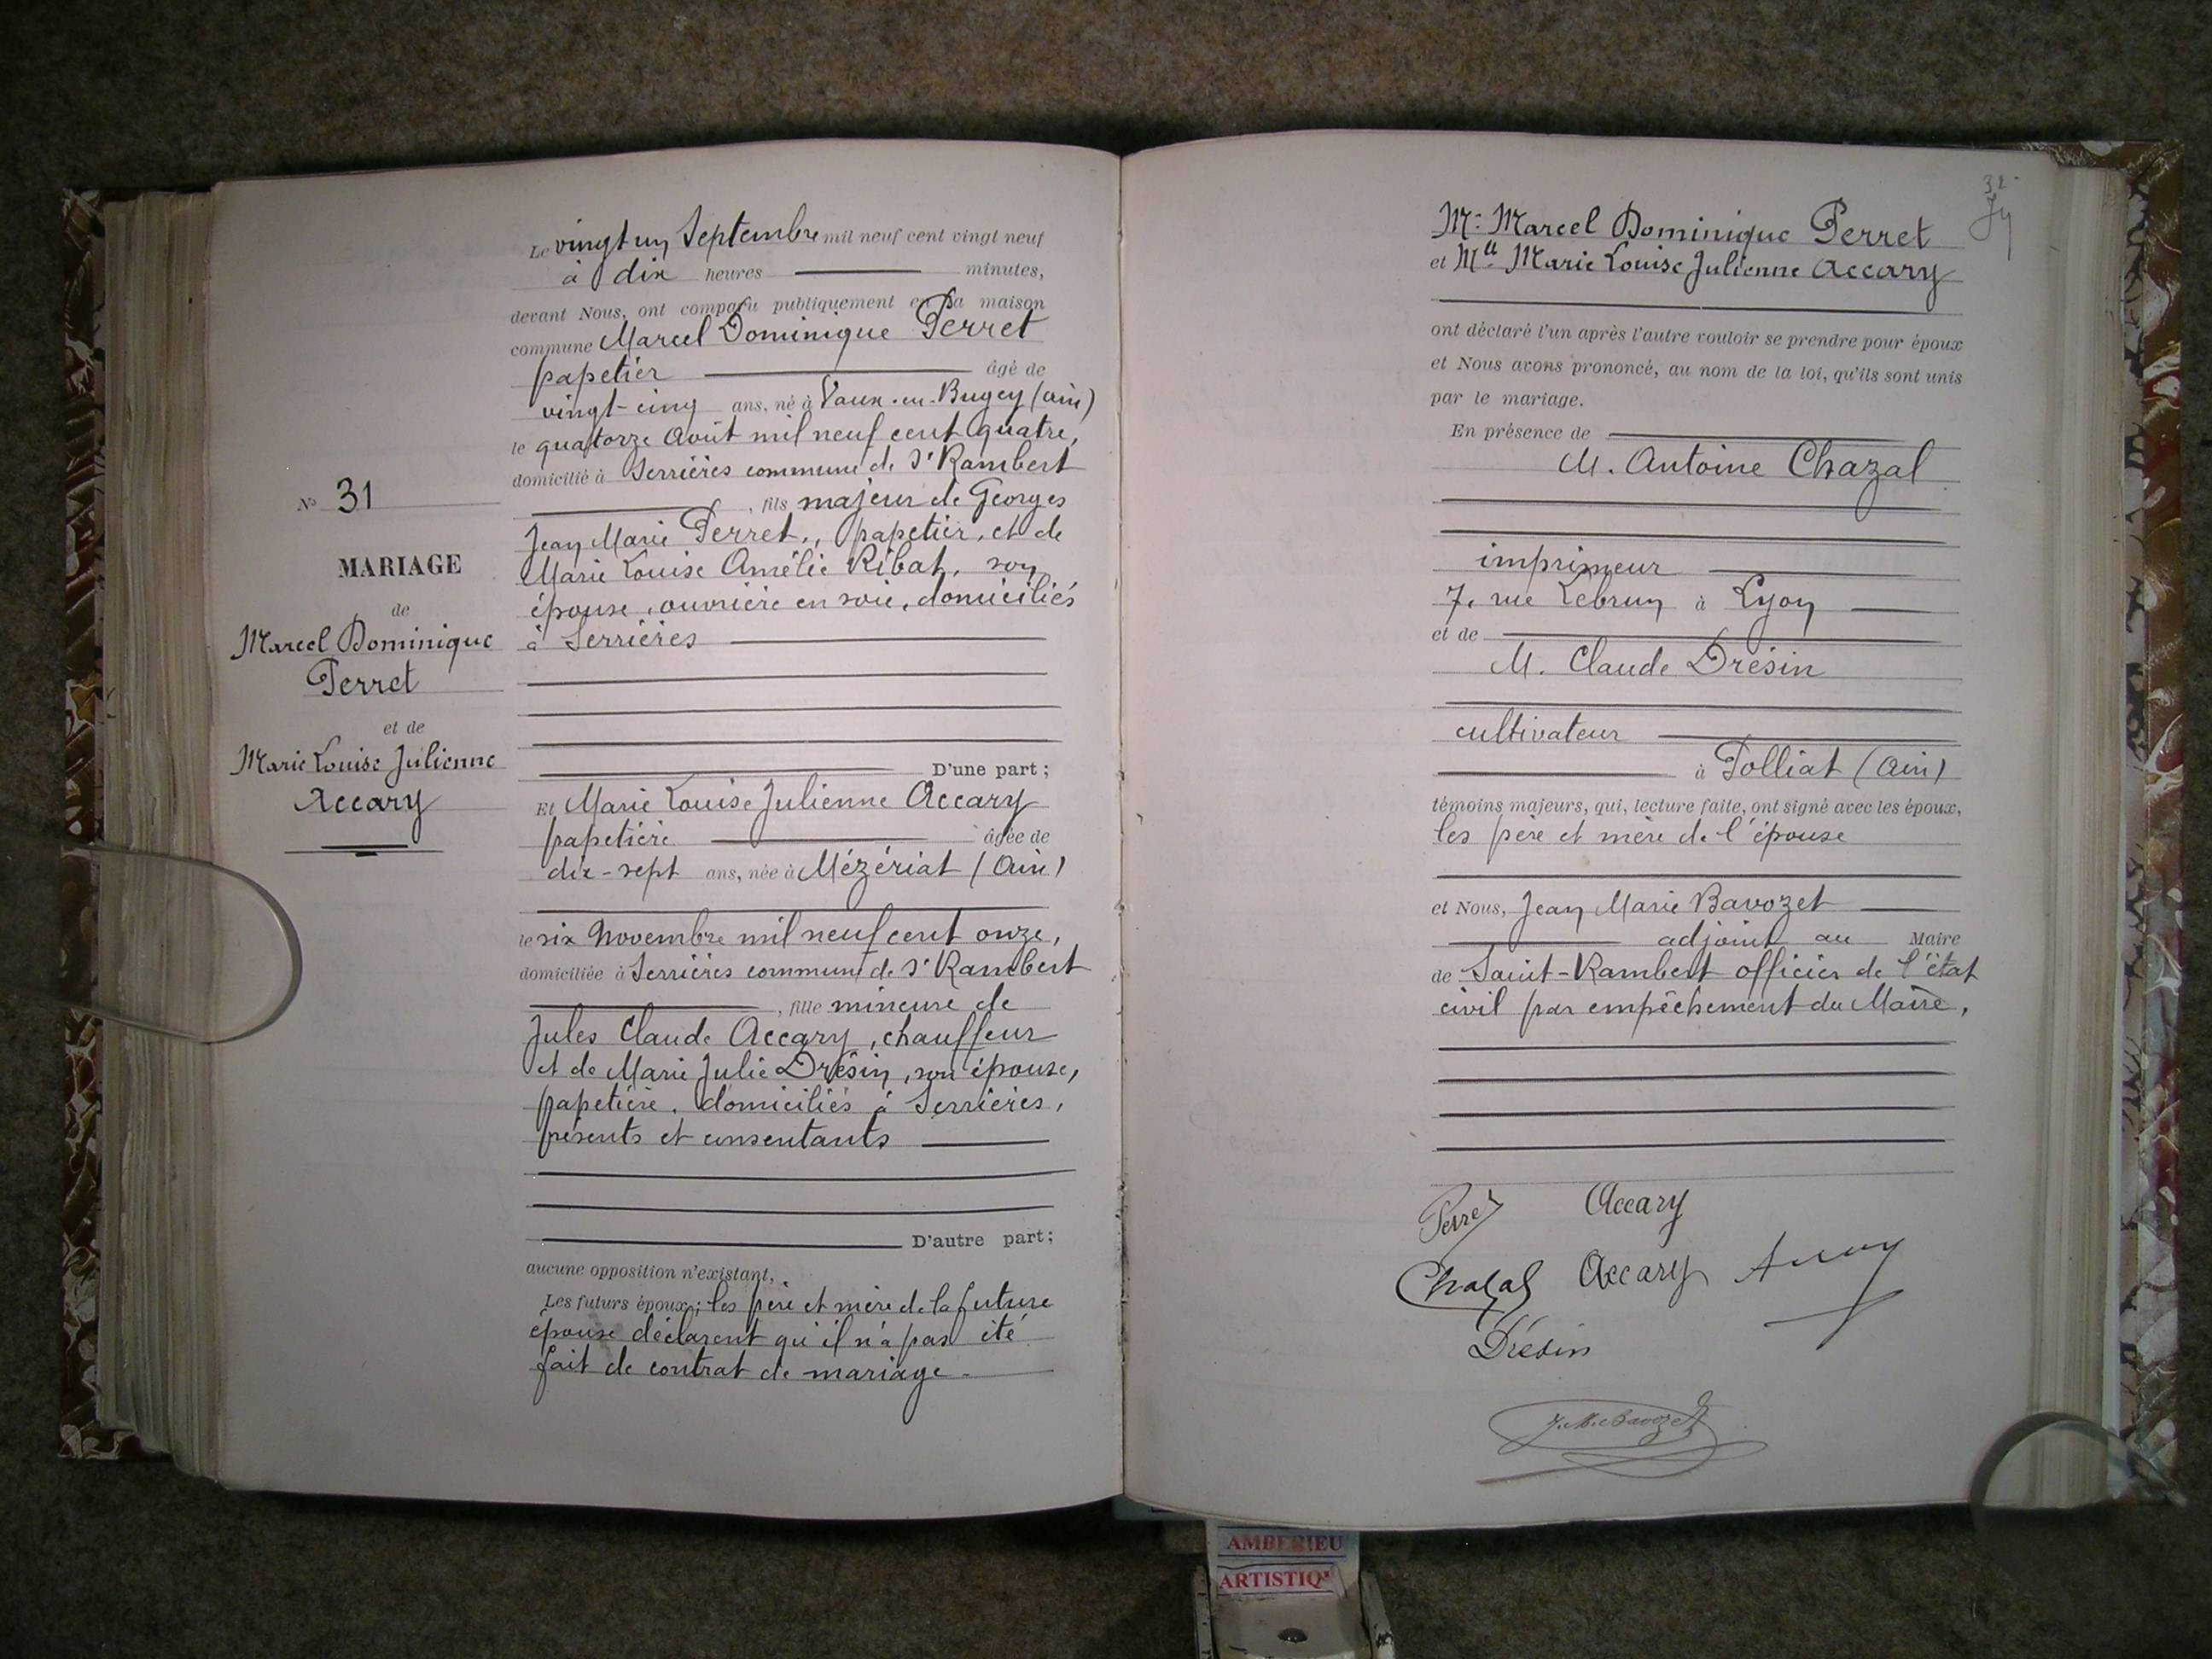 N° 31
MARIAGE
de
Marcel Dominique
Perret
et de
Marie Louise Julienne
Accary
Le vingt un Septembre mil neuf cent vingt neuf
à dix heures minutes,
devant Nous, ont comparu publiquement en la maison
commune Marcel Dominique Perret
papetier âgé de
vingt-cinq ans, né à Vaux-en-Bugey (Ain)
le quatorze Août mil neuf cent quatre,
domicilié à Serrières commune de St Rambert
, fils majeur de Georges
Jean Marie Perret, papetier, et de
Marie Louise Amélie Ribat, son
épouse, ouvrière en soie, domiciliés
à Serrières
D'une part;
Et Marie Louise Julienne Accary
papetière âgée de
dix-sept ans, née à Mézériat (Ain)
le six Novembre mil neuf cent onze,
domiciliée à Serrières commune de St Rambert
, fille mineure de
Jules Claude Accary, chauffeur
et de Marie Julie Drésin, son épouse,
papetière, domiciliés à Serrières,
présents et consentants
D'autre part;
aucune opposition n'existant,
Les futurs époux; les père et mère de la future
épouse déclarent qu'il n'a pas été
fait de contrat de mariage.
32
M: Marcel Dominique Perret
et Mlle Marie Louise Julienne Accary
ont déclaré l'un après l'autre vouloir se prendre pour époux
et Nous avons prononcé, au nom de la loi, qu'ils sont unis
par le mariage.
En présence de
M. Antoine Chazal
imprimeur
7, rue Lebrun à Lyon
et de
M. Claude Drésin
cultivateur
à Polliat (Ain)
témoins majeurs, qui, lecture faite, ont signé avec les époux,
les père et mère de l'épouse
et Nous, Jean Marie Bavozet
adjoint au Maire
de Saint-Rambert officier de l'état
civil par empêchement du Maire,
Perret Accary
Chazal Accary
Drésin
J.M. Bavozet
AMBERIEU
ARTISTIQ